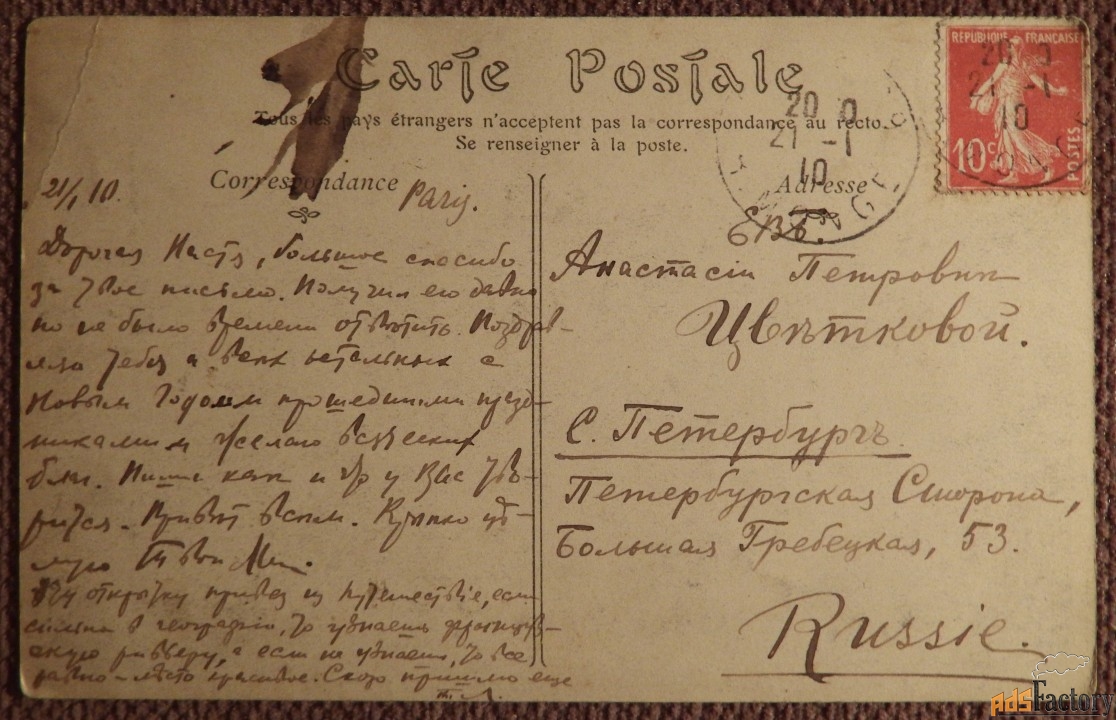 Carte Postale
Tous les pays étrangers n'acceptent pas la correspondance au recto.
Se renseigner à la poste.
Correspondance
Adresse
RÉPUBLIQUE FRANÇAISE
10c
POSTES
20
21 -1
10
21/1 10.
Paris.
Дорогая Настя, большое спасибо
за твое письмо. Получил его давно
но не было времени отвѣтить. Поздрав-
ляю тебя и всѣх остальных с
Новым Годом прошедшими празд-
никами и желаю всяческих
благ. Пиши как и что у Вас тво-
рится. Привѣт всем. Крѣпко цѣ-
лую Твой
Эту открытку привез из путешествіе, если
сильна в географіи, то узнаешь француз-
скую ривьеру, а если не узнаешь, то все
равно - мѣсто красивое. Скоро пришлю еще
ЕВБ.
Анастасіи Петровнѣ
Цвѣтковой.
С. Петербургъ.
Петербургская Сторона,
Большая Гребецкая, 53.
Russie.
AdsFactory